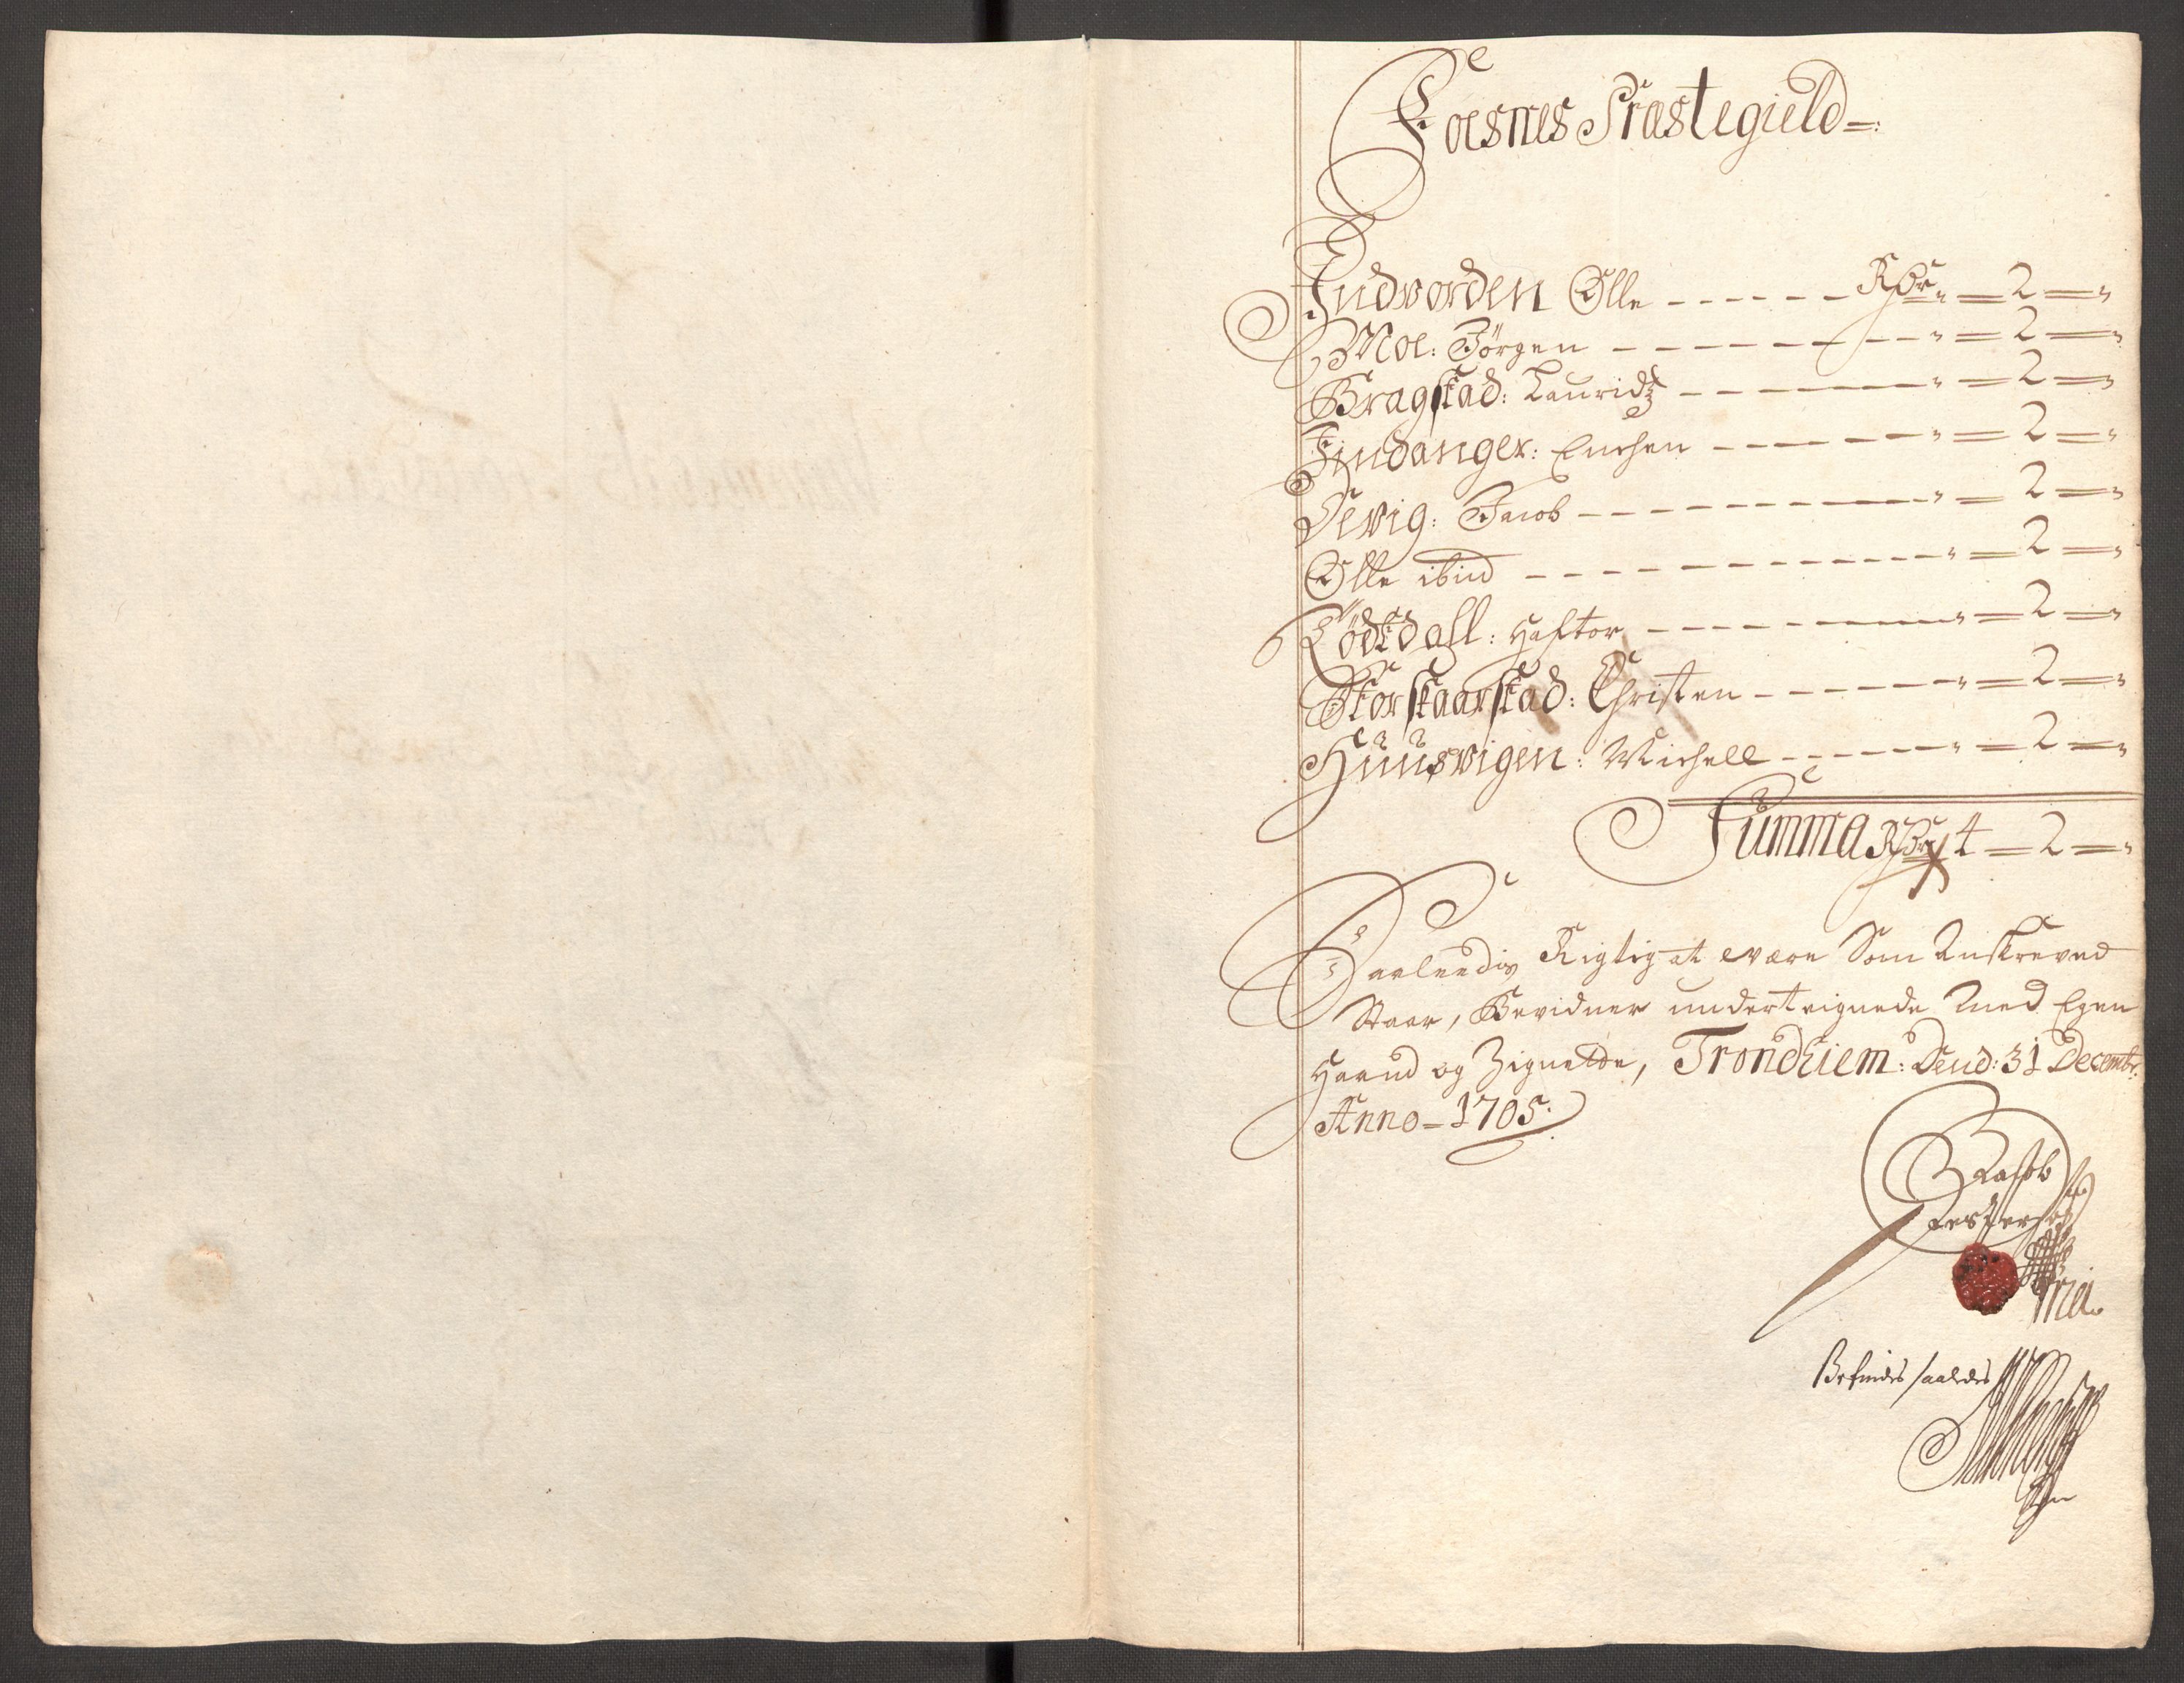 Foesnes Præstegield
Indvorden Olle - - - - - - Rdr " = 2 = "
Moe: Jörgen - - - - - - - " = 2 = "
Bragstad: Lauridz - - - - - - - " = 2 = "
Findanger: Enchen - - - - - - " = 2 = "
Devig: Jacob - - - - - - - - - " = 2 = "
Olle ibid - - - - - - - - - - " = 2 = "
Lödtdall: Haftor - - - - - - - " = 2 = "
Storstaarstad: Christen - - - - - " = 2 = "
Huusvigen: Michell - - - - - " = 2 = "
Summa Rdr 4 = 2 = "
Saaleedis Rigtig at være Som Anskreved
Staar, Bevidner underteignede Med Egen
Haand og Zignette, Trondhiem: Dend: 31 Decembr:
Anno = 1705.
Jacob
Jespersen
Befindes saaledes